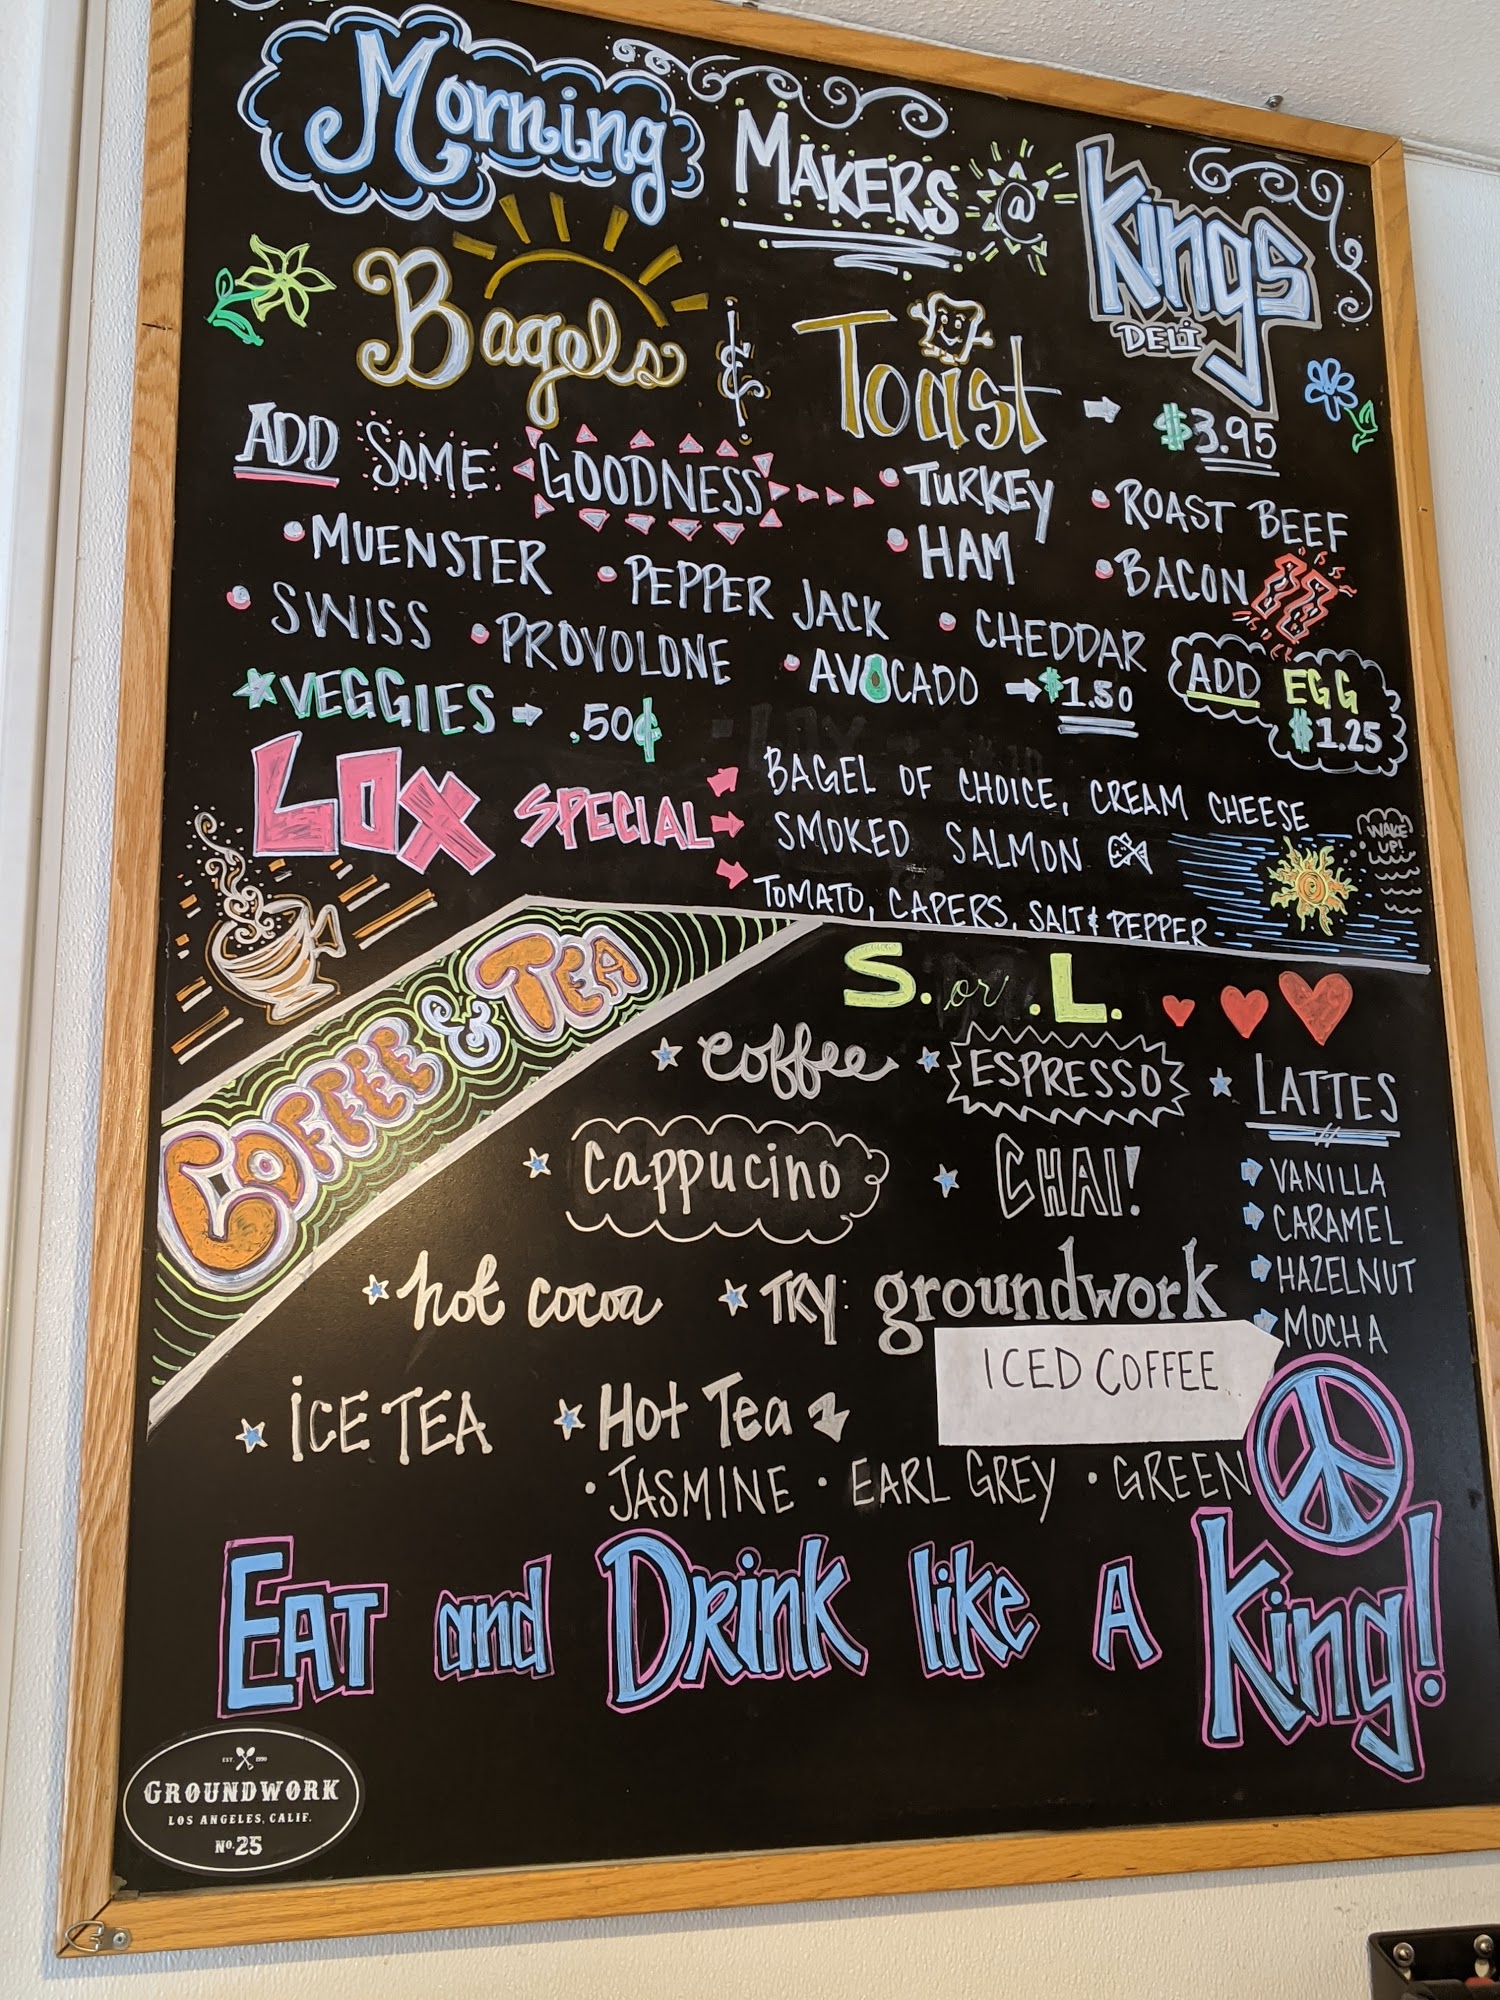 Morning MAKERS @ Kings
DELI
Bagels & Toast → $3.95
ADD SOME GOODNESS • TURKEY • ROAST BEEF
• MUENSTER • PEPPER JACK • HAM • BACON
• SWISS • PROVOLONE • AVOCADO • CHEDDAR → $1.50
ADD EGG
$1.25
★ VEGGIES → .50¢
LOX SPECIAL
BAGEL OF CHOICE, CREAM CHEESE
SMOKED SALMON
TOMATO, CAPERS, SALT & PEPPER
WAKE
UP!
COFFEE & TEA
S. or .L.
★ Coffee ★ ESPRESSO ★ LATTES
★ Cappucino ★ CHAI!
VANILLA
CARAMEL
HAZELNUT
MOCHA
★ hot cocoa ★ TRY: groundwork
ICED COFFEE
★ ICE TEA ★ Hot Tea
• JASMINE • EARL GREY • GREEN
EAT and DRink like A King!
EST. 1990
GROUNDWORK
LOS ANGELES, CALIF.
No. 25